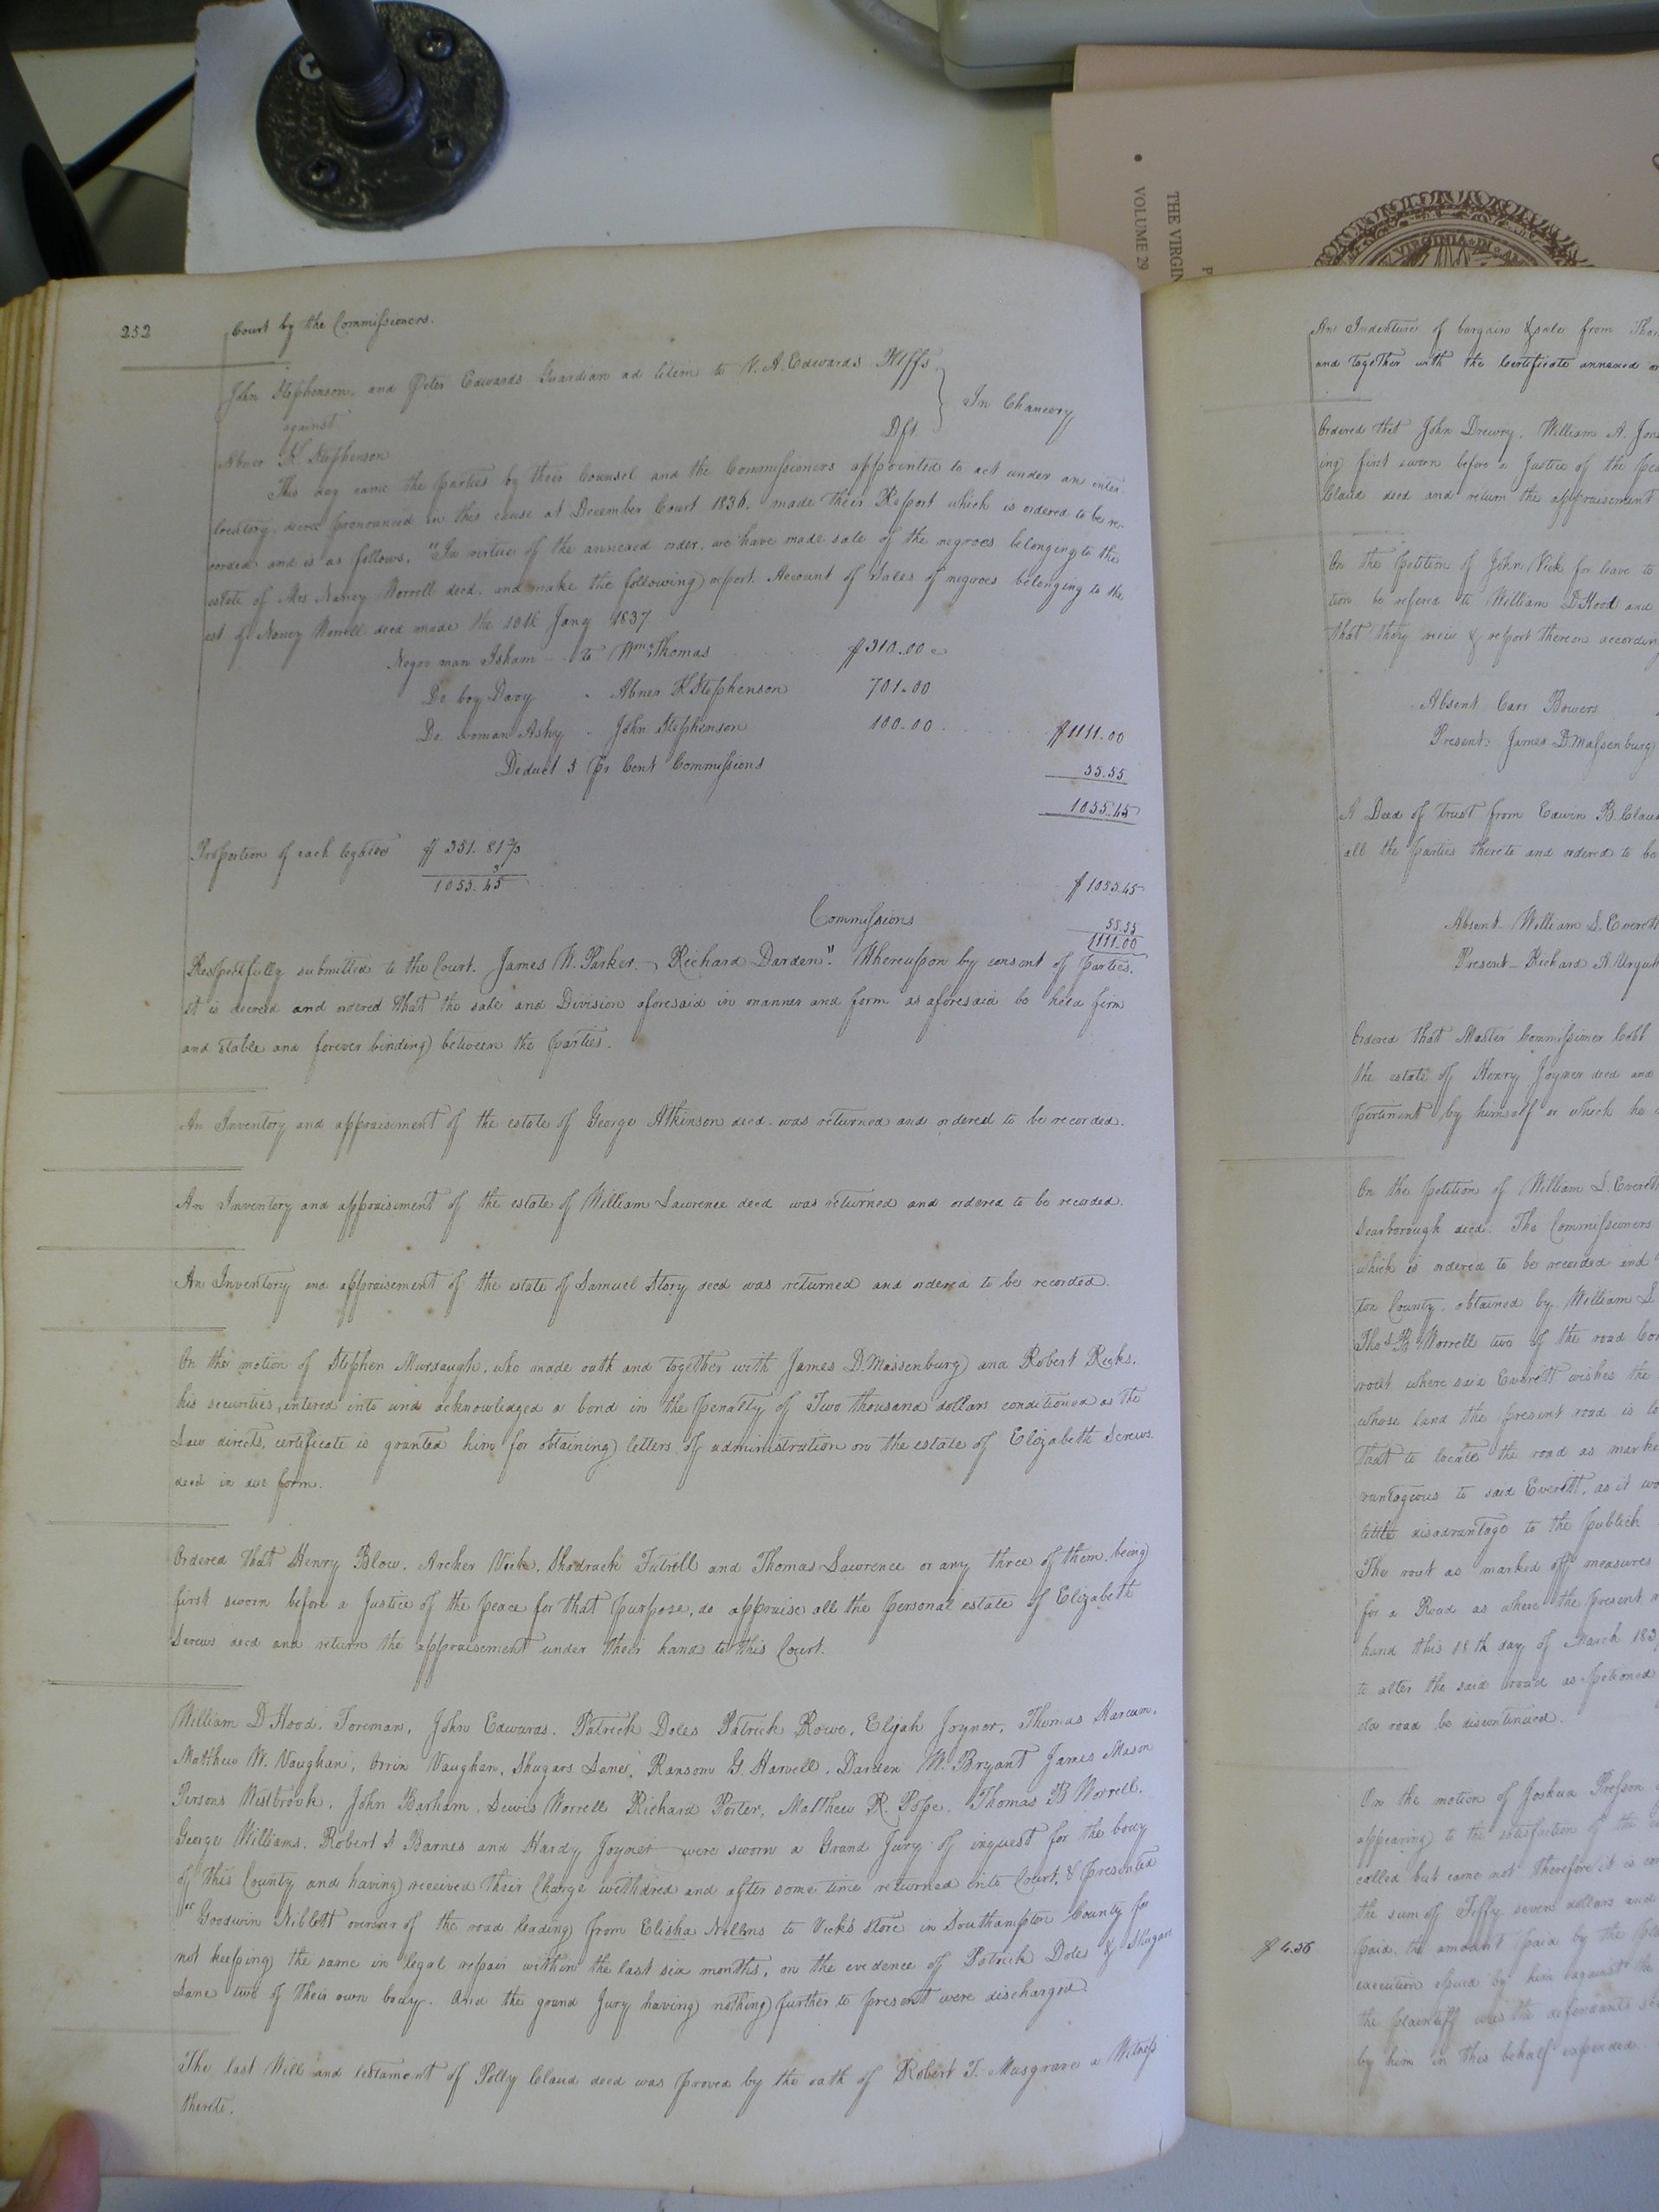 THE VIRGIN
VOLUME 29
VIRGINIA
252
Court by the Commissioners.
John Stephenson, and Peter Edwards Guardian ad litem to V. A. Edwards Plffs
against
In Chancery
Dft.
Abner K Stephenson
This day came the parties by their Counsel and the Commissioners appointed to act under an inter
locutory decree pronounced in this cause at December Court 1836, made their Report which is ordered to be re-
corded and is as follows. "In virtue of the annexed order, we have made sale of the negroes belonging to the
estate of Mrs Nancy Worrell decd. and make the following report. Account of Sales of negroes belonging to the
est of Nancy Worrell decd made the 10th Jany 1837
Negro man Isham to Wm. Thomas $310.00
Do boy Davy " Abner K Stephenson 701.00
Do. woman Ashy " John Stephenson 100.00 $1111.00
Deduct 5 pr Cent Commissions 55.55
1055.45
Proportion of each legatee $351.81 2/3
3
1055.45 $1055.45
Commissions 55.55
1111.00
Respectfully submitted to the Court. James W. Parker, Richard Darden". Whereupon by consent of parties.
it is decreed and ordered that the sale and Division aforesaid in manner and form as aforesaid be held firm
and stable and forever binding between the parties.
An Inventory and appraisement of the estate of George Atkinson decd. was returned and ordered to be recorded.
An Inventory and appraisement of the estate of William Lawrence decd was returned and ordered to be recorded.
An Inventory and appraisement of the estate of Samuel Story decd was returned and ordered to be recorded.
On the motion of Stephen Murdaugh, who made oath and together with James D. Massenburg and Robert Ricks,
his securities, entered into and acknowledged a bond in the penalty of Two thousand dollars conditioned as the
Law directs, certificate is granted him for obtaining letters of administration on the estate of Elizabeth Screws
decd in due form.
Ordered that Henry Blow, Archer Vick, Shadrack Futrell and Thomas Lawrence or any three of them, being
first sworn before a Justice of the peace for that purpose, do appraise all the personal estate of Elizabeth
Screws decd and return the appraisement under their hands to this Court.
William D Hood, Foreman, John Edwards, Patrick Doles Patrick Rowe, Elijah Joyner, Thomas Harcum,
Matthew W. Vaughan, Orrin Vaughan, Shugars Lane, Ransom G. Harvell, Darden W. Bryant James Mason
Persons Westbrook, John Barham, Lewis Worrell Richard Porter, Matthew R. Pope, Thomas B Worrell,
George Williams, Robert S Barnes and Hardy Joyner were sworn a Grand Jury of inquest for the body
of this County and having received their Charge withdred and after some time returned into Court, & presented
"Goodwin Niblett overseer of the road leading from Elisha Nellms to Vicks store in Southampton County for
not keeping the same in legal repair within the last six months, on the evedence of Patrick Doles & Shugars
Lane two of their own body. And the grand Jury having nothing further to present were discharged.
The last Will and testament of Polly Claud decd was proved by the oath of Robert T. Musgrave a Witness
thereto.
An Indenture of bargain & sale from
and together with the Certificate annexed
Ordered that John Drewry, William A.
ing first sworn before a Justice of the
Claud decd and return the appraisement
On the Petition of John Vick for leave to
tion be refered to William D Hood and
that they veiw & report thereon
Absent Carr Bowers
Present James D. Massenburg
A Deed of trust from Edwin B.
all the parties thereto and ordered to be
Absent William S.
Present Richard A.
Ordered that Master Commissioner Cobb
the estate of Henry Joyner decd and
pertinent by himself or which he
On the petition of William S.
Scarborough decd. The Commissioners
which is ordered to be recorded and
ton County, obtained by William S
Thos B Worrell two of the road
rout where said Everett wishes the
whose land the present road is
that to locate the road as
vantageous to said Everett, as it
little disadvantage to the publick
The rout as marked off measures
for a Road as where the present
hand this 18th day of March
to alter the said road as petioned
old road be discontinued.
On the motion of Joshua
appearing to the satisfaction of the
called but came not therefore it is
the sum of Fiffy seven dollars and
$4.56
paid, the amount paid by the
execution issued by him against the
the plaintiff was the defendants
by him in this behalf expended